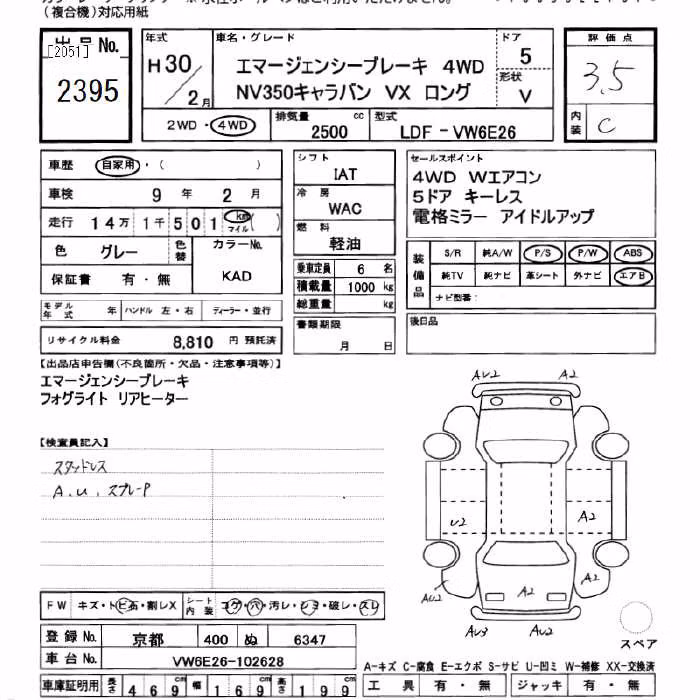 (複合機)対応用紙
出品 No.
[2051]
2395
年式
H30/2月
車名・グレード
エマージェンシーブレーキ 4WD
NV350キャラバン VX ロング
ドア
5
形状
V
評価点
3.5
内装
C
2WD・4WD
排気量
2500 cc
型式
LDF - VW6E26
車歴 自家用・( )
車検 9年 2月
走行 14万1千501 km マイル ( )
色 グレー
色替
カラーNo.
KAD
保証書 有・無
シフト
IAT
冷房
WAC
燃料
軽油
乗車定員 6 名
積載量 1000 kg
総重量 kg
書類期限
月 日
セールスポイント
4WD Wエアコン
5ドア キーレス
電格ミラー アイドルアップ
装備品
S/R 純A/W P/S P/W ABS
純TV 純ナビ 革シート 外ナビ エアB
ナビ型番:
後日品
モデル年式 年 ハンドル 左・右 ディーラー・並行
リサイクル料金 8,810 円 預託済
【出品店申告欄(不良箇所・欠品・注意事項等)】
エマージェンシーブレーキ
フォグライト リアヒーター
【検査員記入】
スタッドレス
A.U.スプレーP
AU2 A2
U2 A2
AU2 A2
AU3 AU2
スペア
FW キズ・トビ石・割レX シート内装 コゲ・穴・汚レ・シミ・破レ・スレ
登録No. 京都 400 ぬ 6347
車台No. VW6E26-102628
車庫証明用 長さ 469cm 幅 169cm 高さ 199cm
A-キズ C-腐食 E-エクボ S-サビ U-凹ミ W-補修 XX-交換済
工具 有・無 ジャッキ 有・無